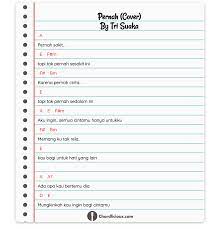 Pernah (Cover)
By Tri Suaka
A
Pernah sakit,
E F#m
tapi tak pernah sesakit ini
F# Bm
Karena pernah cinta
E
tapi tak pernah sedalam ini
A E F#m
Aku ingin, semua cintamu hanya untukku
F# Bm
Memang ku tak rela,
E
kau bagi untuk hati yang lain
A A7
Ada apa kau bertemu dia
D E
Mungkinkah kau ingin bagi cintamu
Chordlicious.com